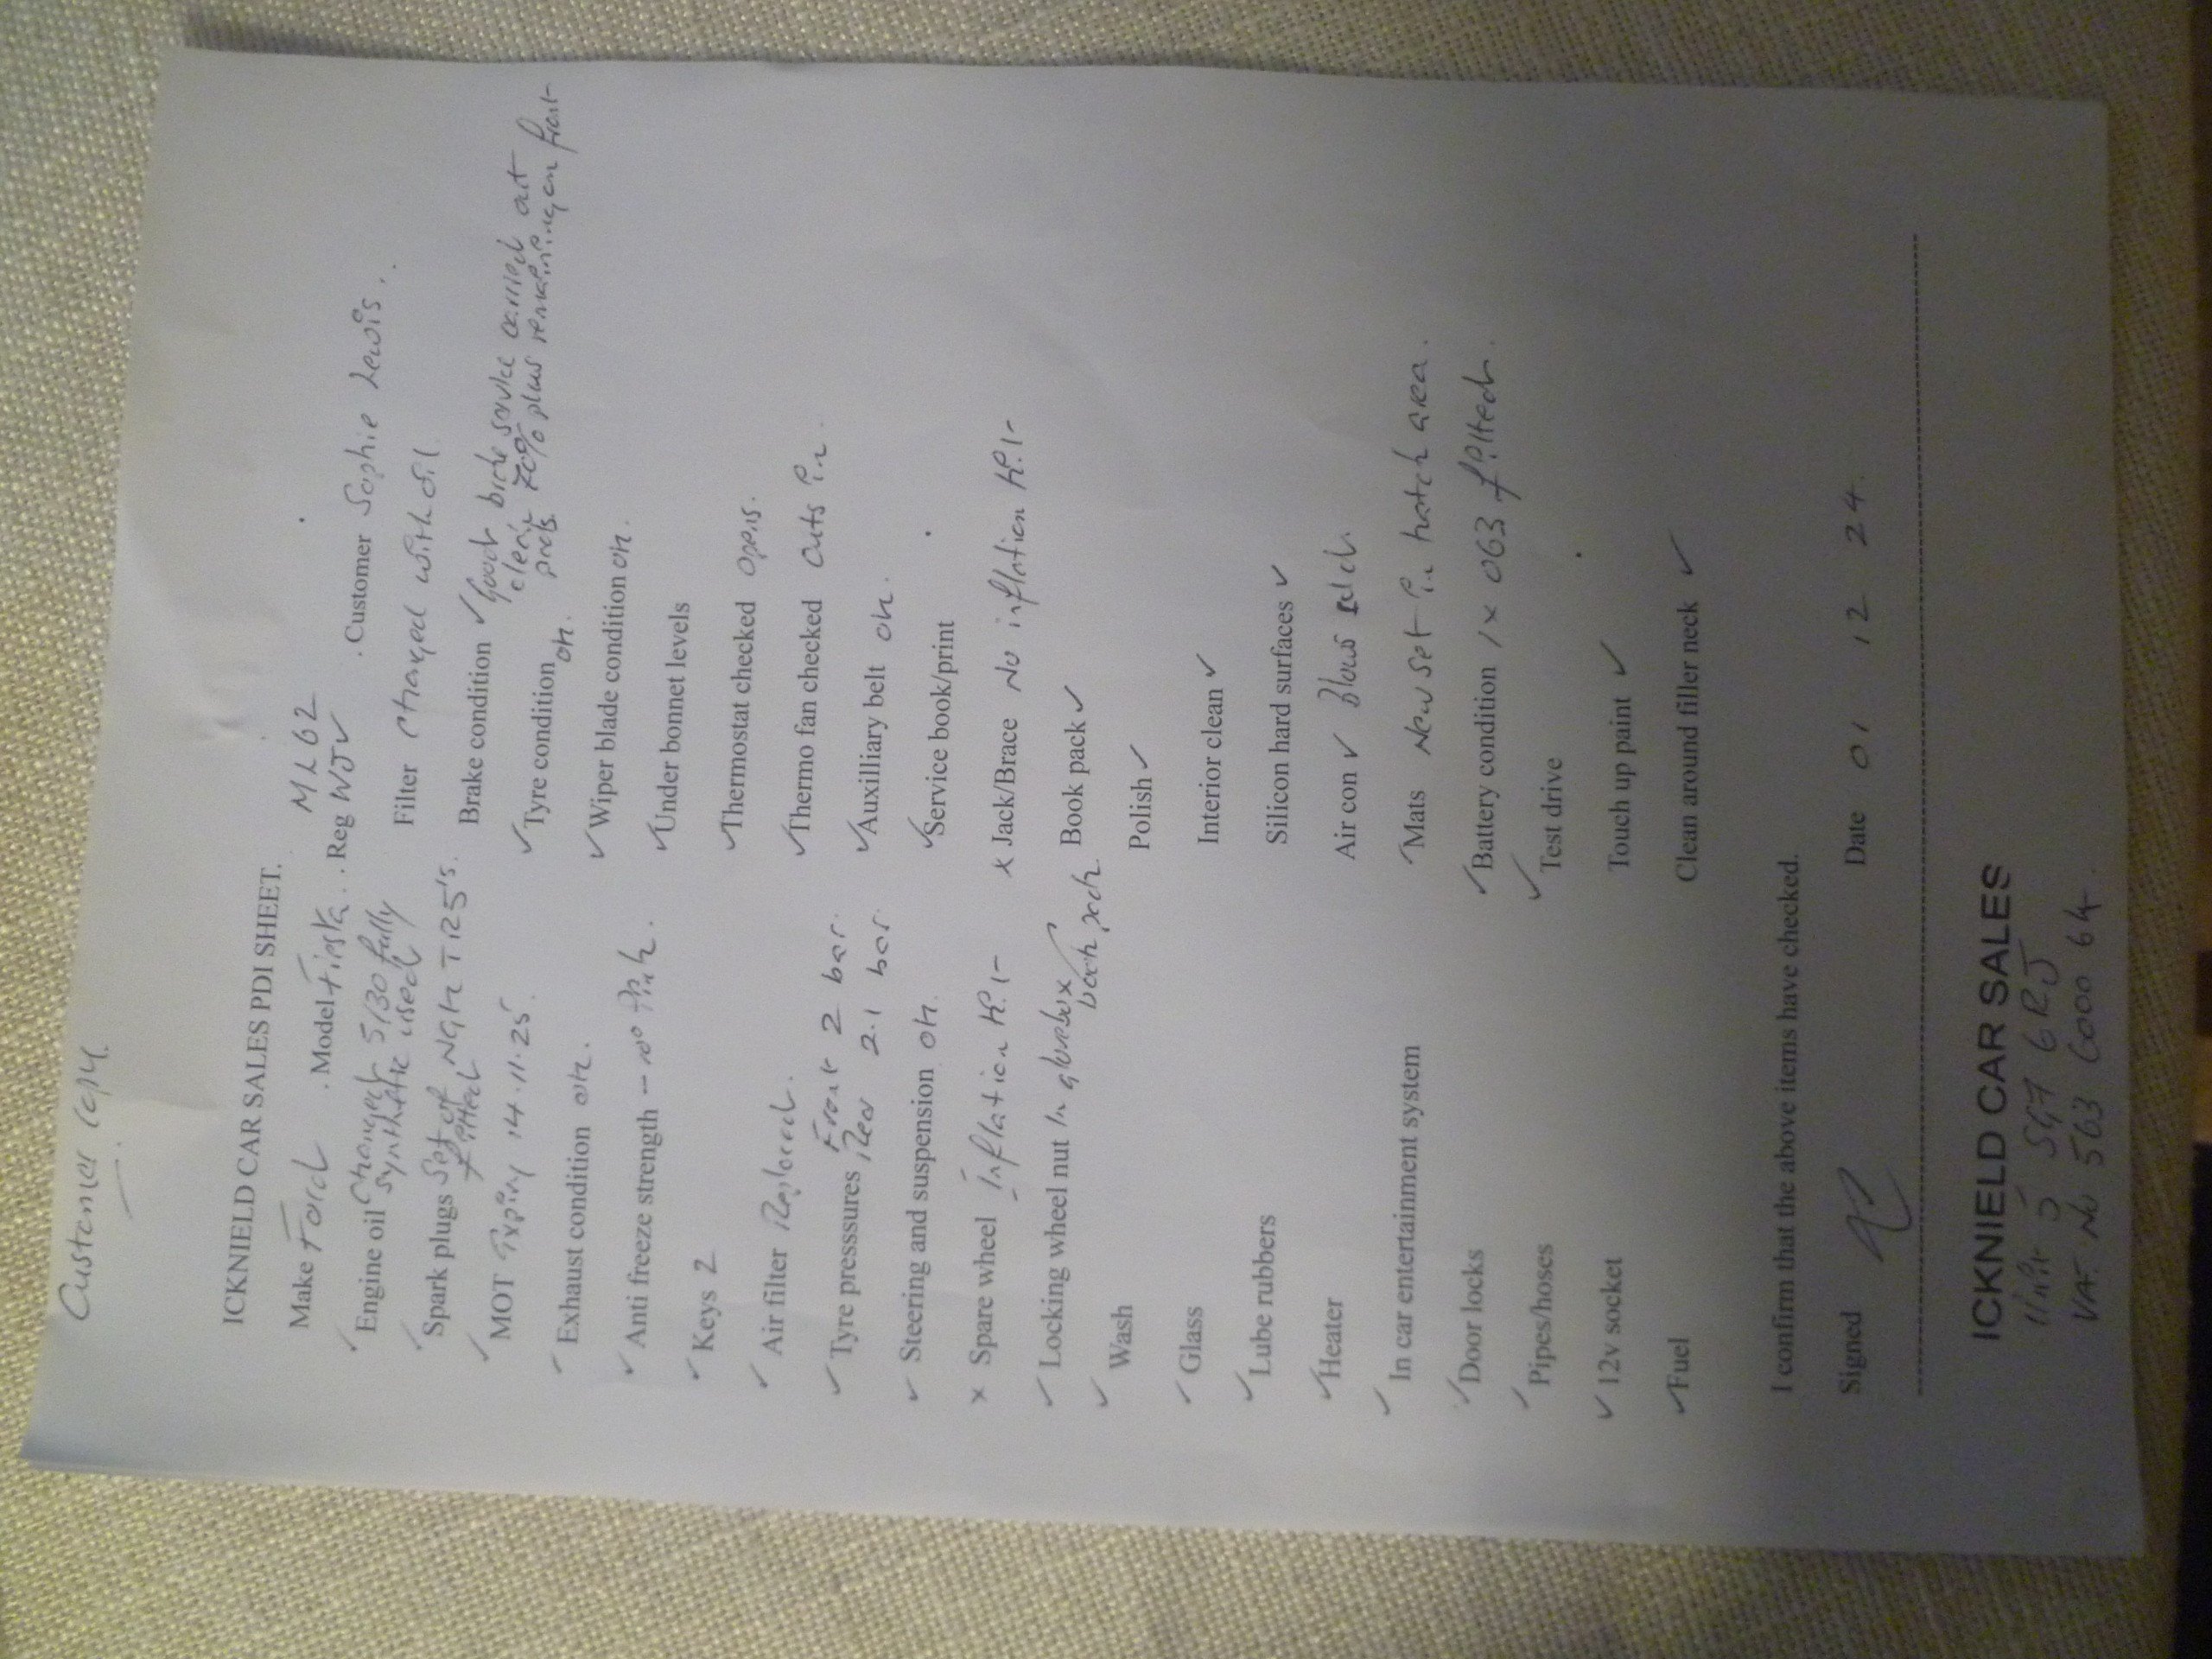 Customer Copy.
ICKNIELD CAR SALES PDI SHEET.
Make Ford . Model Fiesta. . Reg ML62 WJV . Customer Sophie Lewis.
✓ Engine oil Changed 5/30 fully synthetic used
Filter Changed with oil
✓ Spark plugs Set of NGK TR5's. fitted
Brake condition ✓ Good brake service carried out 70% plus remaining on front pads
✓ MOT Expiry 14.11.25.
✓ Tyre condition OK.
✓ Exhaust condition OK.
✓ Wiper blade condition OK.
✓ Anti freeze strength -- 10° Pink.
✓ Under bonnet levels
✓ Keys 2
✓ Thermostat checked opens.
✓ Air filter Replaced.
✓ Thermo fan checked Cuts in.
✓ Tyre presssures Front 2 bar. Rear 2.1 bar.
✓ Auxilliary belt OK.
✓ Steering and suspension OK.
✓ Service book/print
x Spare wheel Inflation Kit
x Jack/Brace No inflation Kit
✓ Locking wheel nut In glovebox book pack
Book pack ✓
✓ Wash
Polish ✓
✓ Glass
Interior clean ✓
✓ Lube rubbers
Silicon hard surfaces ✓
✓ Heater
Air con ✓ Blows cold.
✓ In car entertainment system
✓ Mats New set in hatch area.
✓ Door locks
✓ Battery condition 1x 063 fitted.
✓ Pipes/hoses
✓ Test drive
✓ 12v socket
Touch up paint ✓
✓ Fuel
Clean around filler neck ✓
I confirm that the above items have checked.
Signed
Date 01 12 24.
ICKNIELD CAR SALES
Unit 5 SG7 6RJ
VAT No 563 6000 64.